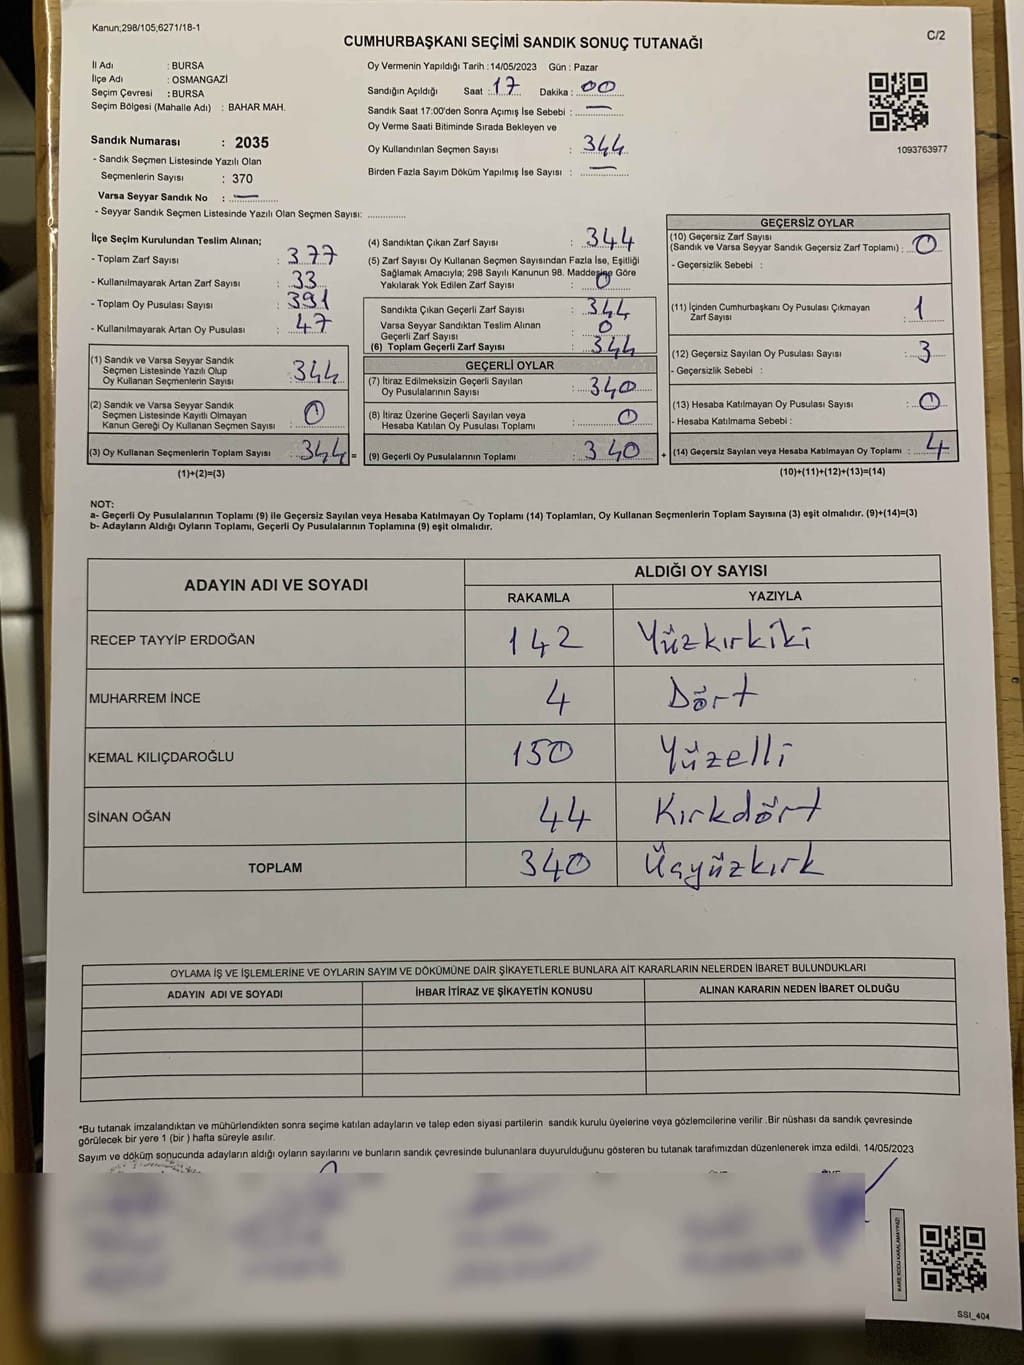 Kanun;298/105;6271/18-1
C/2
CUMHURBAŞKANI SEÇİMİ SANDIK SONUÇ TUTANAĞI
İl Adı : BURSA
İlçe Adı : OSMANGAZİ
Seçim Çevresi : BURSA
Seçim Bölgesi (Mahalle Adı) : BAHAR MAH.
Oy Vermenin Yapıldığı Tarih : 14/05/2023 Gün : Pazar
Sandığın Açıldığı Saat : 17 Dakika : 00
Sandık Saat 17:00'den Sonra Açımış İse Sebebi : —
Oy Verme Saati Bitiminde Sırada Bekleyen ve
Oy Kullandırılan Seçmen Sayısı : 344
Birden Fazla Sayım Döküm Yapılmış İse Sayısı : —
1093763977
Sandık Numarası : 2035
- Sandık Seçmen Listesinde Yazılı Olan
Seçmenlerin Sayısı : 370
Varsa Seyyar Sandık No : —
- Seyyar Sandık Seçmen Listesinde Yazılı Olan Seçmen Sayısı: ..............
İlçe Seçim Kurulundan Teslim Alınan;
- Toplam Zarf Sayısı : 377
- Kullanılmayarak Artan Zarf Sayısı : 33
- Toplam Oy Pusulası Sayısı : 391
- Kullanılmayarak Artan Oy Pusulası : 47
(1) Sandık ve Varsa Seyyar Sandık
Seçmen Listesinde Yazılı Olup
Oy Kullanan Seçmenlerin Sayısı : 344
(2) Sandık ve Varsa Seyyar Sandık
Seçmen Listesinde Kayıtlı Olmayan
Kanun Gereği Oy Kullanan Seçmen Sayısı : 0
(3) Oy Kullanan Seçmenlerin Toplam Sayısı : 344 =
(1)+(2)=(3)
(4) Sandıktan Çıkan Zarf Sayısı : 344
(5) Zarf Sayısı Oy Kullanan Seçmen Sayısından Fazla İse, Eşitliği
Sağlamak Amacıyla; 298 Sayılı Kanunun 98. Maddesine Göre
Yakılarak Yok Edilen Zarf Sayısı : 0
Sandıkta Çıkan Geçerli Zarf Sayısı : 344
Varsa Seyyar Sandıktan Teslim Alınan
Geçerli Zarf Sayısı : 0
(6) Toplam Geçerli Zarf Sayısı : 344
GEÇERLİ OYLAR
(7) İtiraz Edilmeksizin Geçerli Sayılan
Oy Pusulalarının Sayısı : 340
(8) İtiraz Üzerine Geçerli Sayılan veya
Hesaba Katılan Oy Pusulası Toplamı : 0
(9) Geçerli Oy Pusulalarının Toplamı : 340 +
GEÇERSİZ OYLAR
(10) Geçersiz Zarf Sayısı
(Sandık ve Varsa Seyyar Sandık Geçersiz Zarf Toplamı) : 0
- Geçersizlik Sebebi :
(11) İçinden Cumhurbaşkanı Oy Pusulası Çıkmayan
Zarf Sayısı : 1
(12) Geçersiz Sayılan Oy Pusulası Sayısı : 3
- Geçersizlik Sebebi :
(13) Hesaba Katılmayan Oy Pusulası Sayısı : 0
- Hesaba Katılmama Sebebi :
(14) Geçersiz Sayılan veya Hesaba Katılmayan Oy Toplamı : 4
(10)+(11)+(12)+(13)=(14)
NOT:
a- Geçerli Oy Pusulalarının Toplamı (9) ile Geçersiz Sayılan veya Hesaba Katılmayan Oy Toplamı (14) Toplamları, Oy Kullanan Seçmenlerin Toplam Sayısına (3) eşit olmalıdır. (9)+(14)=(3)
b- Adayların Aldığı Oyların Toplamı, Geçerli Oy Pusulalarının Toplamına (9) eşit olmalıdır.
ADAYIN ADI VE SOYADI ALDIĞI OY SAYISI
RAKAMLA YAZIYLA
RECEP TAYYİP ERDOĞAN 142 Yüzkırkiki
MUHARREM İNCE 4 Dört
KEMAL KILIÇDAROĞLU 150 Yüzelli
SİNAN OĞAN 44 Kırkdört
TOPLAM 340 Üçyüzkırk
OYLAMA İŞ VE İŞLEMLERİNE VE OYLARIN SAYIM VE DÖKÜMÜNE DAİR ŞİKAYETLERLE BUNLARA AİT KARARLARIN NELERDEN İBARET BULUNDUKLARI
ADAYIN ADI VE SOYADI İHBAR İTİRAZ VE ŞİKAYETİN KONUSU ALINAN KARARIN NEDEN İBARET OLDUĞU
*Bu tutanak imzalandıktan ve mühürlendikten sonra seçime katılan adayların ve talep eden siyasi partilerin sandık kurulu üyelerine veya gözlemcilerine verilir .Bir nüshası da sandık çevresinde
görülecek bir yere 1 (bir ) hafta süreyle asılır.
Sayım ve döküm sonucunda adayların aldığı oyların sayılarını ve bunların sandık çevresinde bulunanlara duyurulduğunu gösteren bu tutanak tarafımızdan düzenlenerek imza edildi. 14/05/2023
KARE KODU KARALAMAYINIZ!
SSI_404